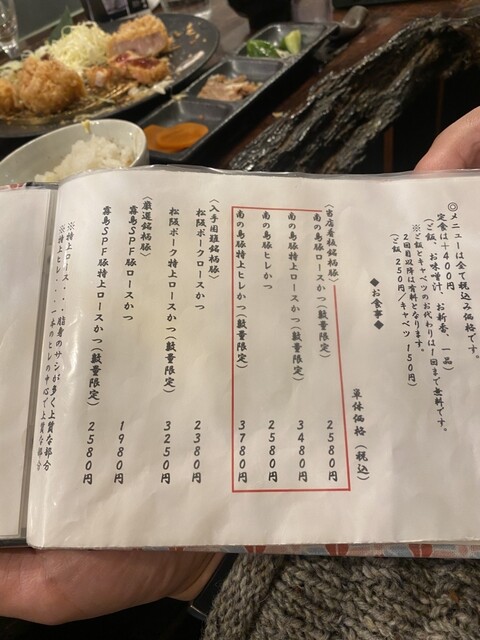 ◎メニューは全て税込み価格です。
定食は+400円
(ご飯、お味噌汁、お新香、一品)
※ご飯とキャベツのお代わりは1回まで無料です。
2回目以降は有料となります。
(ご飯 250円/キャベツ 150円)
◆お食事◆
単体価格(税込)
(当店看板銘柄豚)
南の島豚ロースかつ(数量限定) 2580円
南の島豚特上ロースかつ(数量限定) 3480円
南の島豚ヒレかつ 2580円
南の島豚特上ヒレかつ(数量限定) 3780円
(入手困難銘柄豚)
松阪ポークロースかつ 2380円
松阪ポーク特上ロースかつ(数量限定) 3250円
(厳選銘柄豚)
霧島SPF豚ロースかつ 1980円
霧島SPF豚特上ロースかつ(数量限定) 2580円
※特上ロース・・・脂身のサシが多く上質な部分
※特上ヒレ・・・一本のヒレの中心で上質な部分